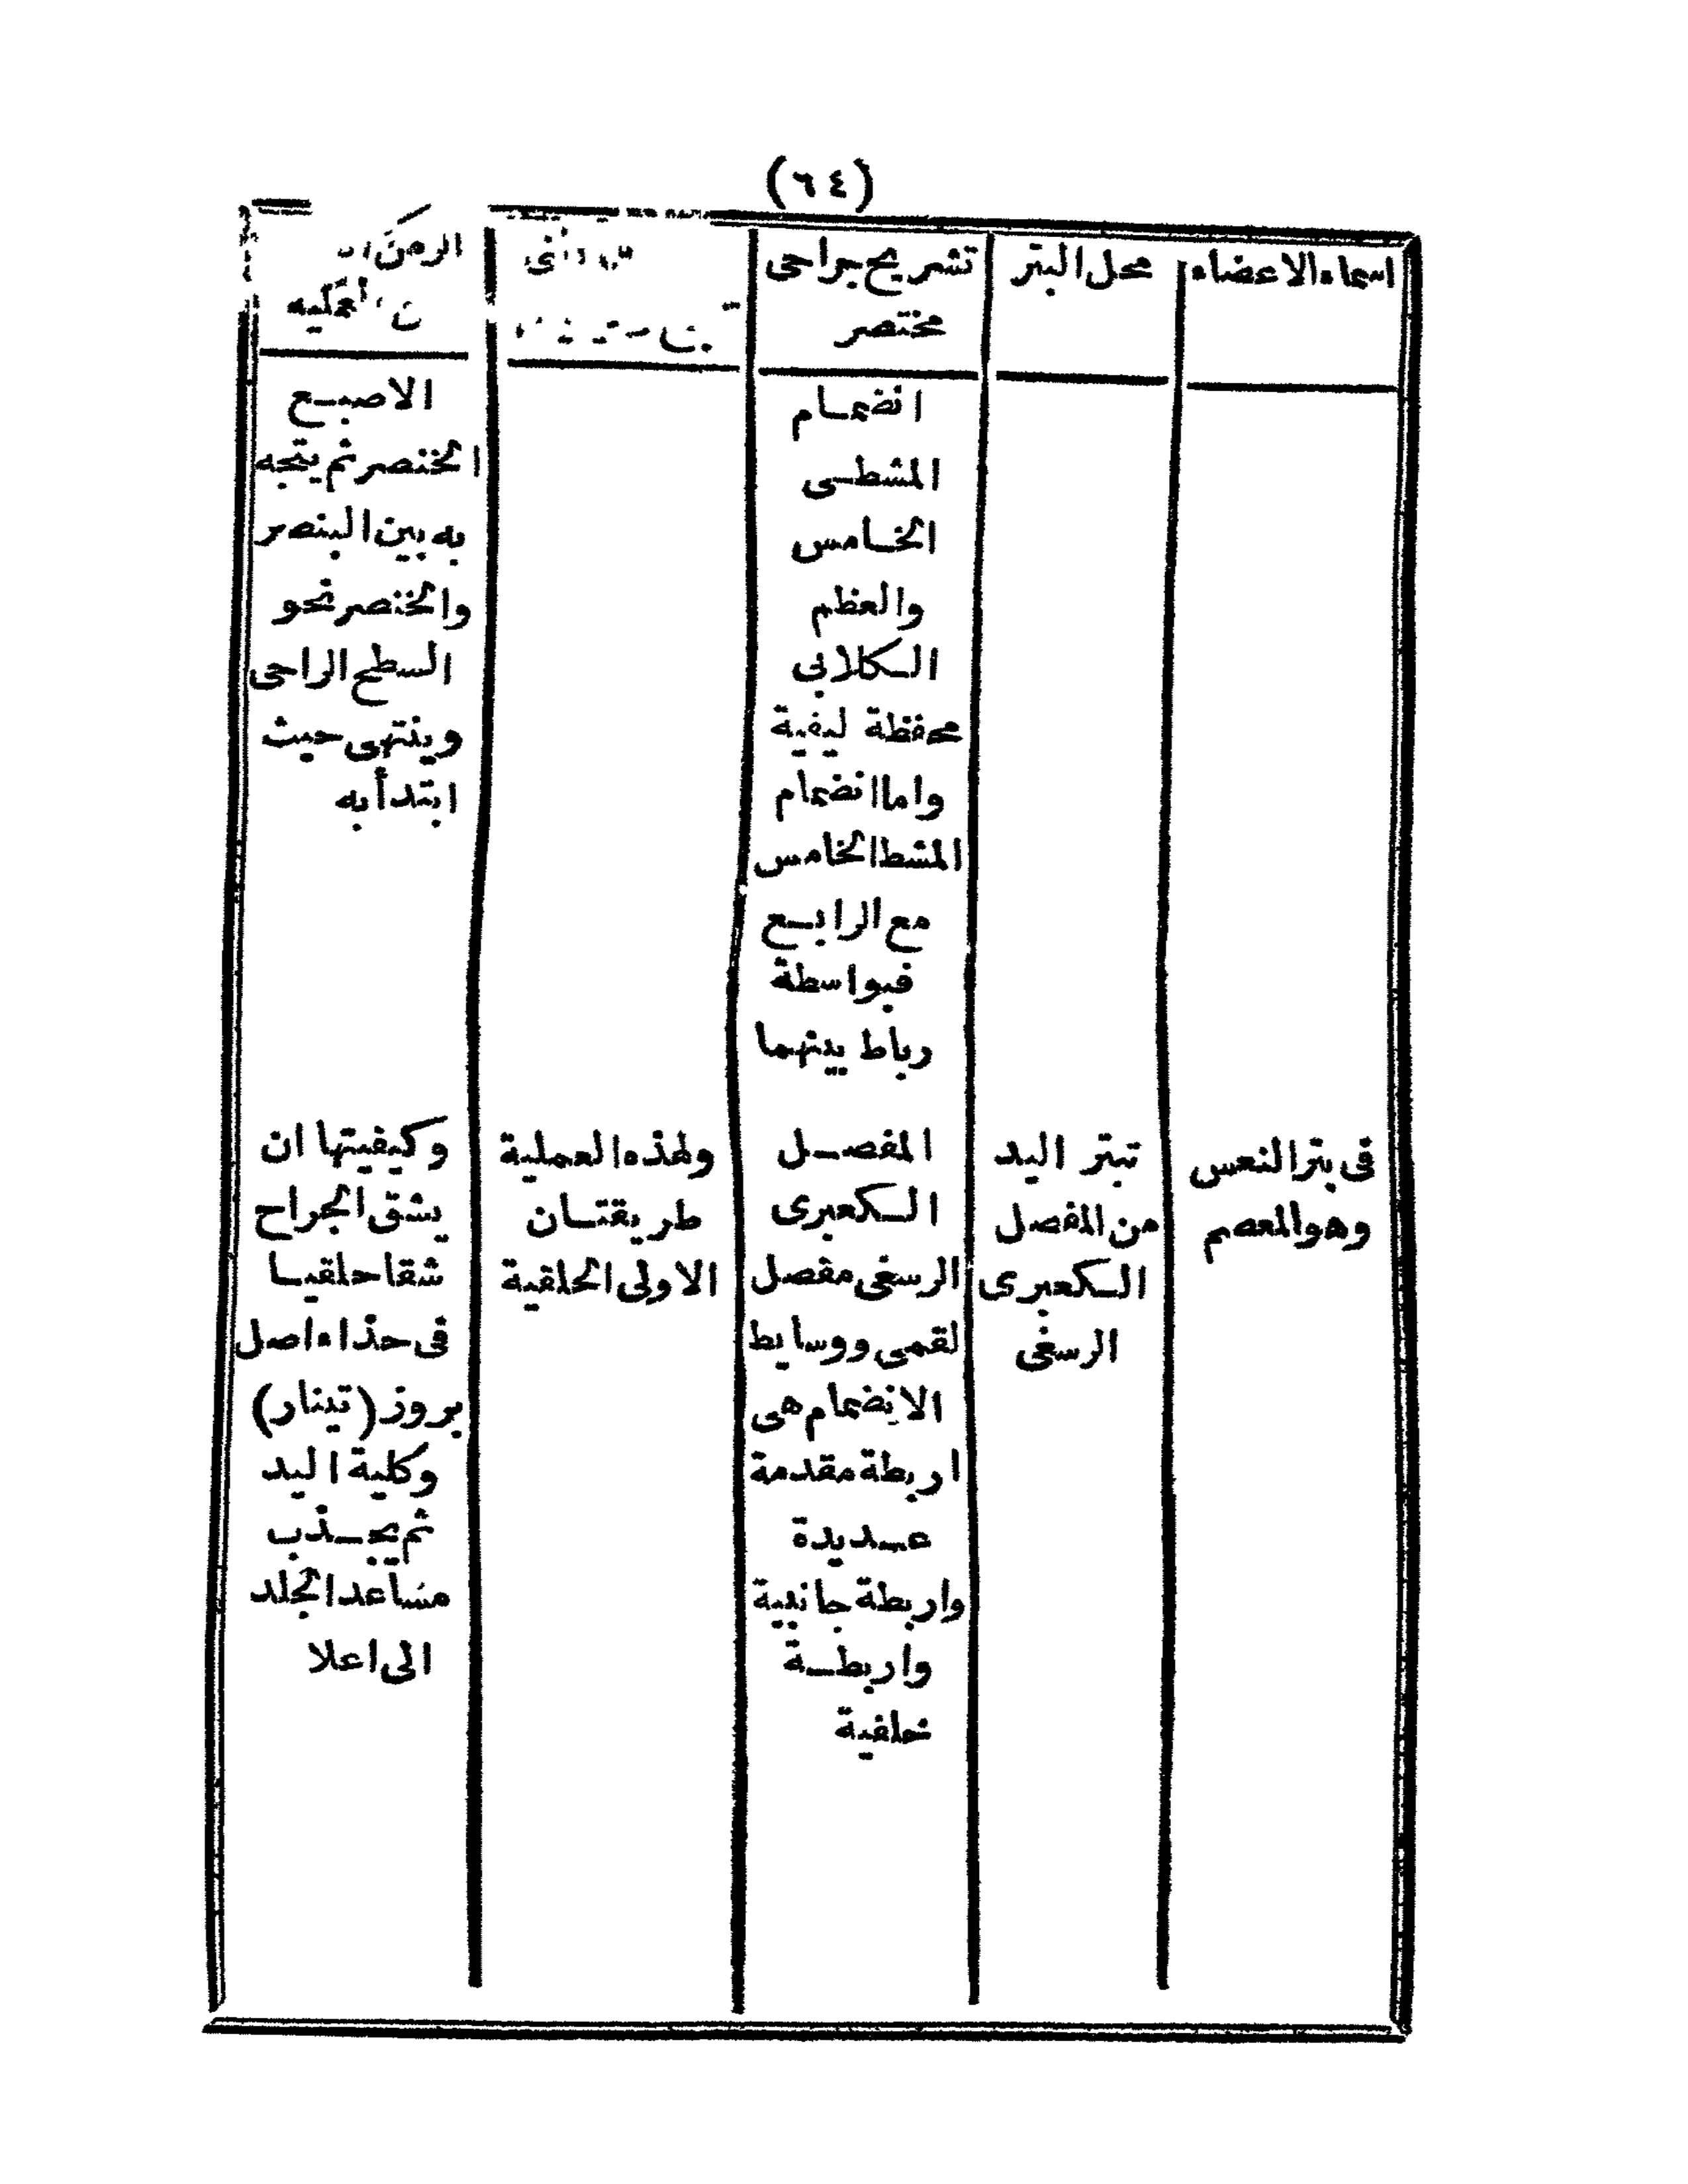 (٦٤)
اسماء الاعضاء
محل البتر
تشريح جراحى
مختصر
الزمن
العمليه
انضمام
المشطى
الخامس
والعظم
الكلابى
محفظة ليفية
واما انضمام
المشط الخامس
مع الرابع
فبواسطة
رباط بينهما
الاصبع
الخنصر ثم يتجه
به بين البنصر
والخنصر نحو
السطح الراحى
وينتهى حيث
ابتدأ به
فى بتر النعس
وهو المعصم
تبتر اليد
من المفصل
الكعبرى
الرسغى
المفصل
الكعبرى
الرسغى مفصل
لقمى ووسايط
الانضمام هى
اربطة مقدمة
عديدة
واربطة جانبية
واربطة
خلفية
ولهذه العملية
طريقتان
الاولى الحلقية
وكيفيتها ان
يشق الجراح
شقا حلقيا
فى حذاء اصل
بروز (تينار)
وكلية اليد
ثم يجذب
مساعد الجلد
الى اعلا